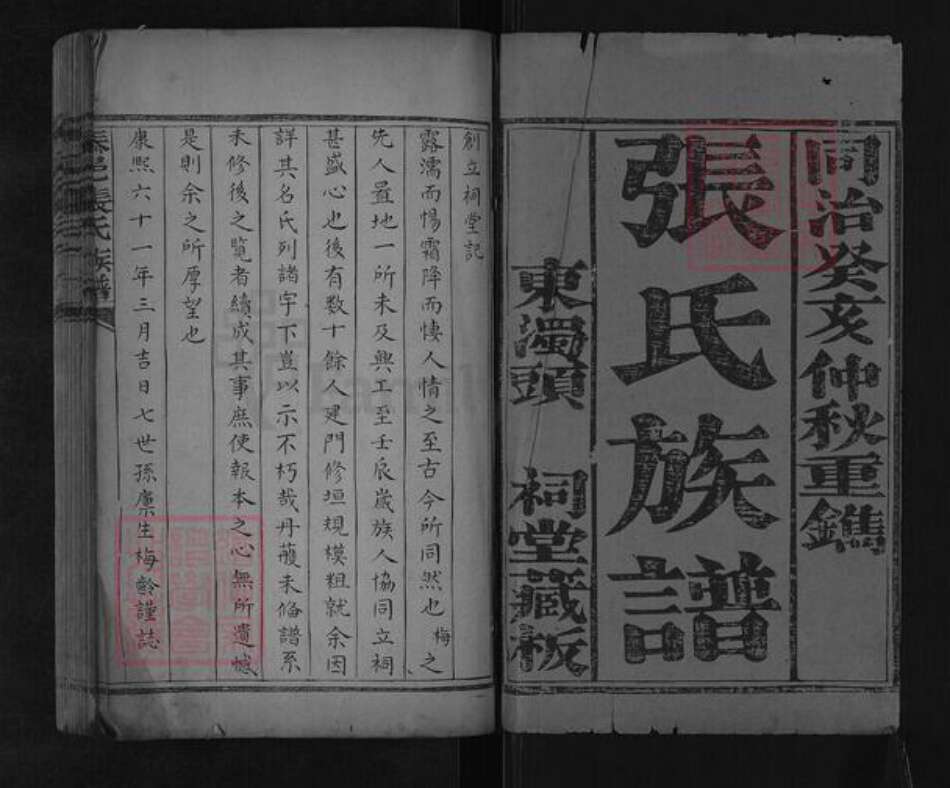 同治癸亥仲秋重鐫
張氏族譜
東濁頭 祠堂藏板
創立祠堂記
露濡而惕霜降而悽人情之至古今所同然也梅之
先人置地一所未及興工至壬辰歲族人協同立祠
甚盛心也後有数十餘人建門修垣規模粗就余因
詳其名氏列諸字下豈以示不朽哉丹雘未偹譜系
未修後之覽者續成其事庶使報本之心無所遺憾
是則余之所厚望也
康熙六十一年三月吉日七世孫廩生梅齡謹誌
邑張氏族譜